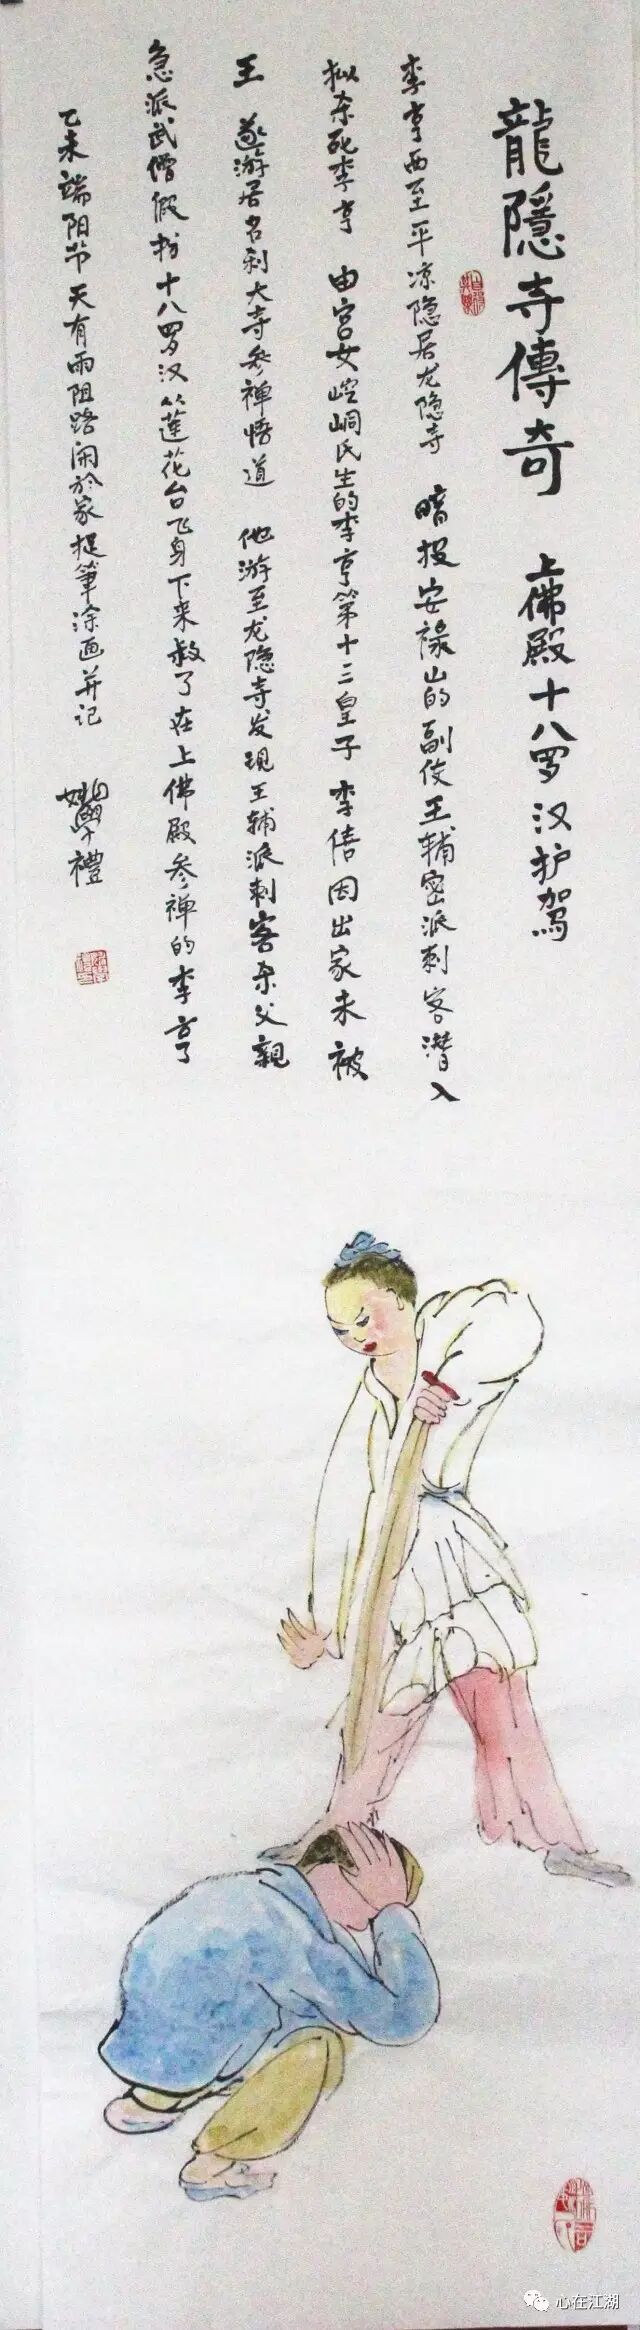 龍隱寺傳奇 上佛殿十八罗汉护驾
李亨西至平凉隐居龙隐寺 暗投安禄山的副使王辅密派刺客潜入
拟杀死李亨 由宫女崆峒氏生的李亨第十三皇子 李僖因出家未被
王 遂游居名刹大寺参禅悟道 他游至龙隐寺发现王辅派刺客杀父親
急派武僧假扮十八罗汉从莲花台飞身下来救了在上佛殿参禅的李亨
乙未端阳节天有雨阻路闲於家捉筆涂画并记
姚學禮
心在江湖